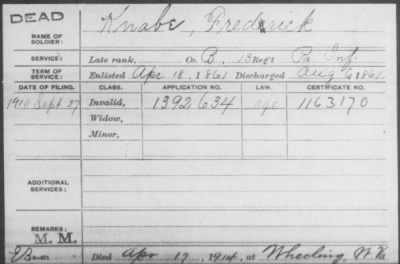 DEAD
Knabe, Frederick
NAME OF
SOLDIER:
SERVICE: Late rank, Co. B, 13 Reg't Pa Inf.
TERM OF
SERVICE: Enlisted Apr 18, 1861 Discharged Aug 6 1861
DATE OF FILING. CLASS. APPLICATION NO. LAW. CERTIFICATE NO.
1910 Sept. 27 Invalid, 1392634 age 1163170
Widow,
Minor,
ADDITIONAL
SERVICES:
REMARKS:
M. M.
Died Apr 17, 1914, at Wheeling, W. Va